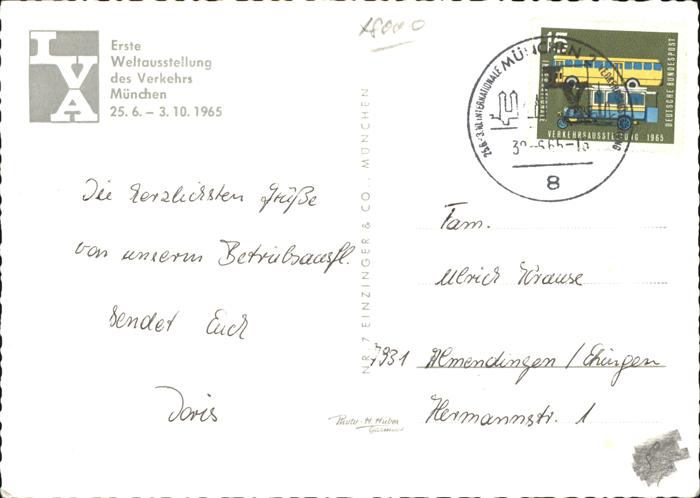 IVA
Erste
Weltausstellung
des Verkehrs
München
25. 6. – 3. 10. 1965
Die herzlichsten Grüße
von unserm Betriebsausfl.
sendet Euch
Doris
NR. 7 EINZINGER & CO., MÜNCHEN
Photo - H. Huber
Garmisch
15
DEUTSCHE BUNDESPOST
VERKEHRSAUSSTELLUNG 1965
MÜNCHEN
8
Fam.
Ulrich Krause
7931 Allmendingen / Ehingen
Hermannstr. 1